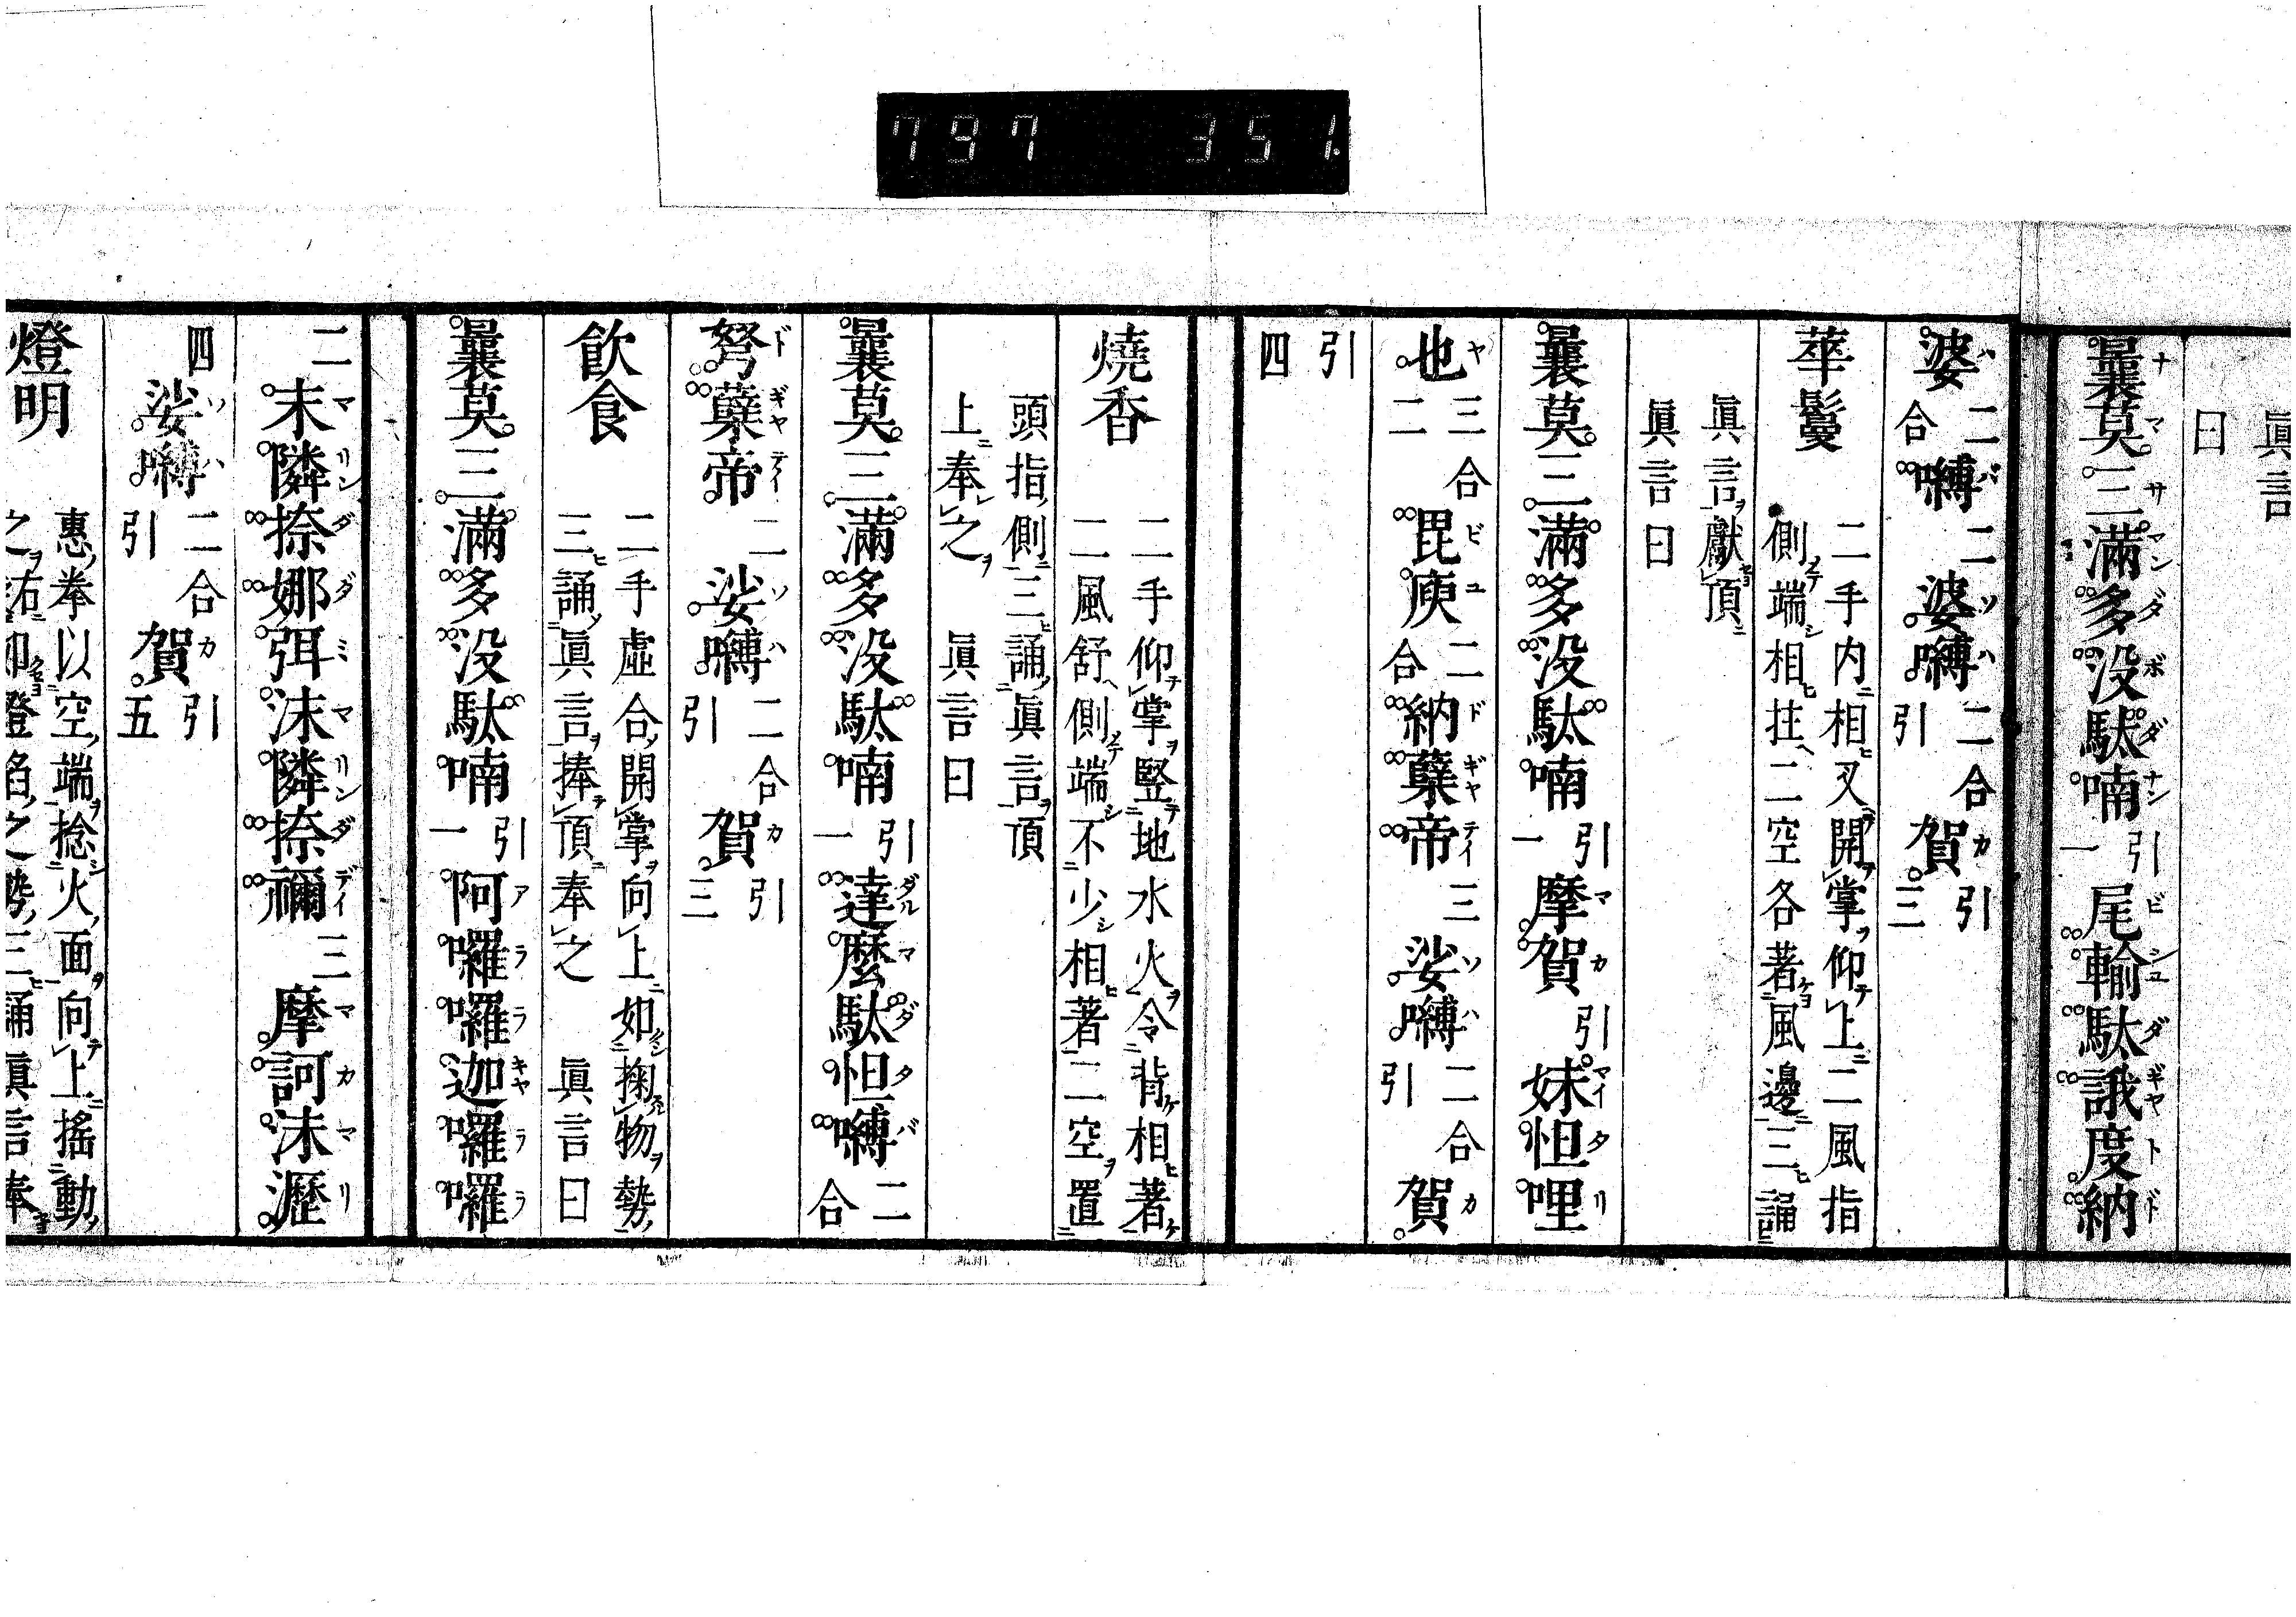 797 351.
眞言
曰
曩莫三滿多没馱喃引一尾輸馱誐度納
婆二合嚩二娑嚩二合引賀引三
華鬘
二手内相叉開掌仰上二風指
側端相拄二空各著風邊三誦
眞言獻頂
眞言曰
曩莫三滿多没馱喃引一摩賀引妹怛哩
也三合二毘庾二合納蘖帝三娑嚩二合引賀
引四
燒香
二手仰掌竪地水火令背相著
二風舒側端不少相著二空置
頭指側三誦眞言頂
上奉之 眞言曰
曩莫三滿多没馱喃引一達麼馱怛嚩二合
弩蘖帝二娑嚩二合引賀引三
飲食
二手虛合開掌向上如掬物勢
三誦眞言捧頂奉之 眞言曰
曩莫三滿多没馱喃引一阿囉囉迦囉囉
二末隣捺娜弭沫隣捺禰三摩訶沫瀝
四娑嚩二合引賀引五
燈明
惠拳以空端捻火面向上搖動
之 燈焰之勢三誦眞言奉